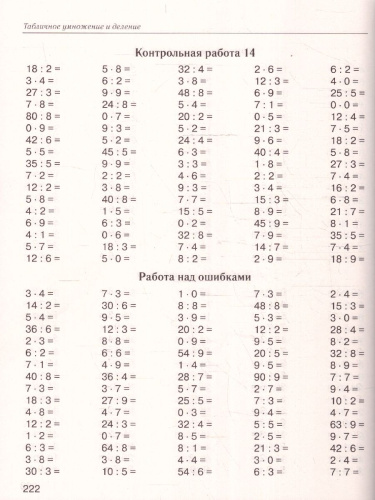 Табличное умножение и деление
Контрольная работа 14
18 : 2 = 5 · 8 = 32 : 4 = 2 · 6 = 6 : 2 =
3 · 4 = 6 : 2 = 3 · 8 = 12 : 3 = 4 · 0 =
27 : 3 = 9 · 9 = 48 : 8 = 6 · 9 = 25 : 5 =
7 · 8 = 24 : 8 = 5 · 4 = 7 : 1 = 0 · 0 =
80 : 8 = 0 · 7 = 20 : 2 = 0 · 5 = 12 : 4 =
0 · 9 = 9 : 3 = 5 · 2 = 21 : 3 = 7 · 5 =
42 : 6 = 5 · 2 = 24 : 4 = 9 · 6 = 18 : 2 =
5 · 5 = 45 : 5 = 6 · 3 = 40 : 4 = 5 · 8 =
35 : 5 = 9 · 9 = 3 : 3 = 1 · 8 = 27 : 3 =
7 · 2 = 2 : 2 = 4 · 6 = 2 : 2 = 7 · 4 =
12 : 2 = 3 · 8 = 9 : 3 = 3 · 4 = 16 : 2 =
5 · 8 = 40 : 8 = 7 · 7 = 15 : 3 = 6 · 8 =
4 : 2 = 1 · 5 = 15 : 5 = 8 · 9 = 21 : 7 =
6 · 9 = 6 : 3 = 0 · 2 = 45 : 9 = 8 · 1 =
4 : 1 = 0 · 6 = 32 : 8 = 7 · 9 = 35 : 5 =
5 · 7 = 18 : 3 = 7 · 4 = 14 : 7 = 7 · 4 =
12 : 6 = 5 · 0 = 8 · 2 = 9 · 4 = 18 : 9 =
Работа над ошибками
3 · 4 = 7 · 3 = 1 · 0 = 7 · 3 = 2 · 4 =
14 : 2 = 30 : 6 = 8 : 8 = 48 : 8 = 15 : 3 =
5 · 4 = 9 · 5 = 3 · 9 = 5 · 3 = 3 · 0 =
36 : 6 = 12 : 3 = 20 : 2 = 12 : 2 = 28 : 4 =
2 · 3 = 8 · 8 = 0 · 9 = 9 · 5 = 8 · 2 =
6 : 2 = 6 : 6 = 54 : 9 = 20 : 5 = 32 : 8 =
7 · 1 = 4 · 9 = 1 · 4 = 9 · 5 = 5 · 5 =
40 : 8 = 36 : 4 = 28 : 7 = 90 : 9 = 7 : 7 =
7 · 3 = 3 · 7 = 5 · 7 = 2 · 4 = 7 · 7 =
18 : 3 = 27 : 9 = 25 : 5 = 7 : 3 = 10 : 2 =
4 · 8 = 4 · 7 = 0 · 3 = 9 · 4 = 4 · 7 =
12 : 2 = 24 : 3 = 32 : 4 = 5 : 5 = 63 : 9 =
1 · 2 = 0 · 7 = 8 · 5 = 8 · 2 = 9 · 4 =
6 : 3 = 64 : 8 = 8 : 1 = 21 : 3 = 42 : 6 =
3 · 8 = 3 · 8 = 3 · 0 = 9 · 4 = 2 · 4 =
30 : 3 = 10 : 5 = 54 : 6 = 6 : 3 = 7 : 7 =
222